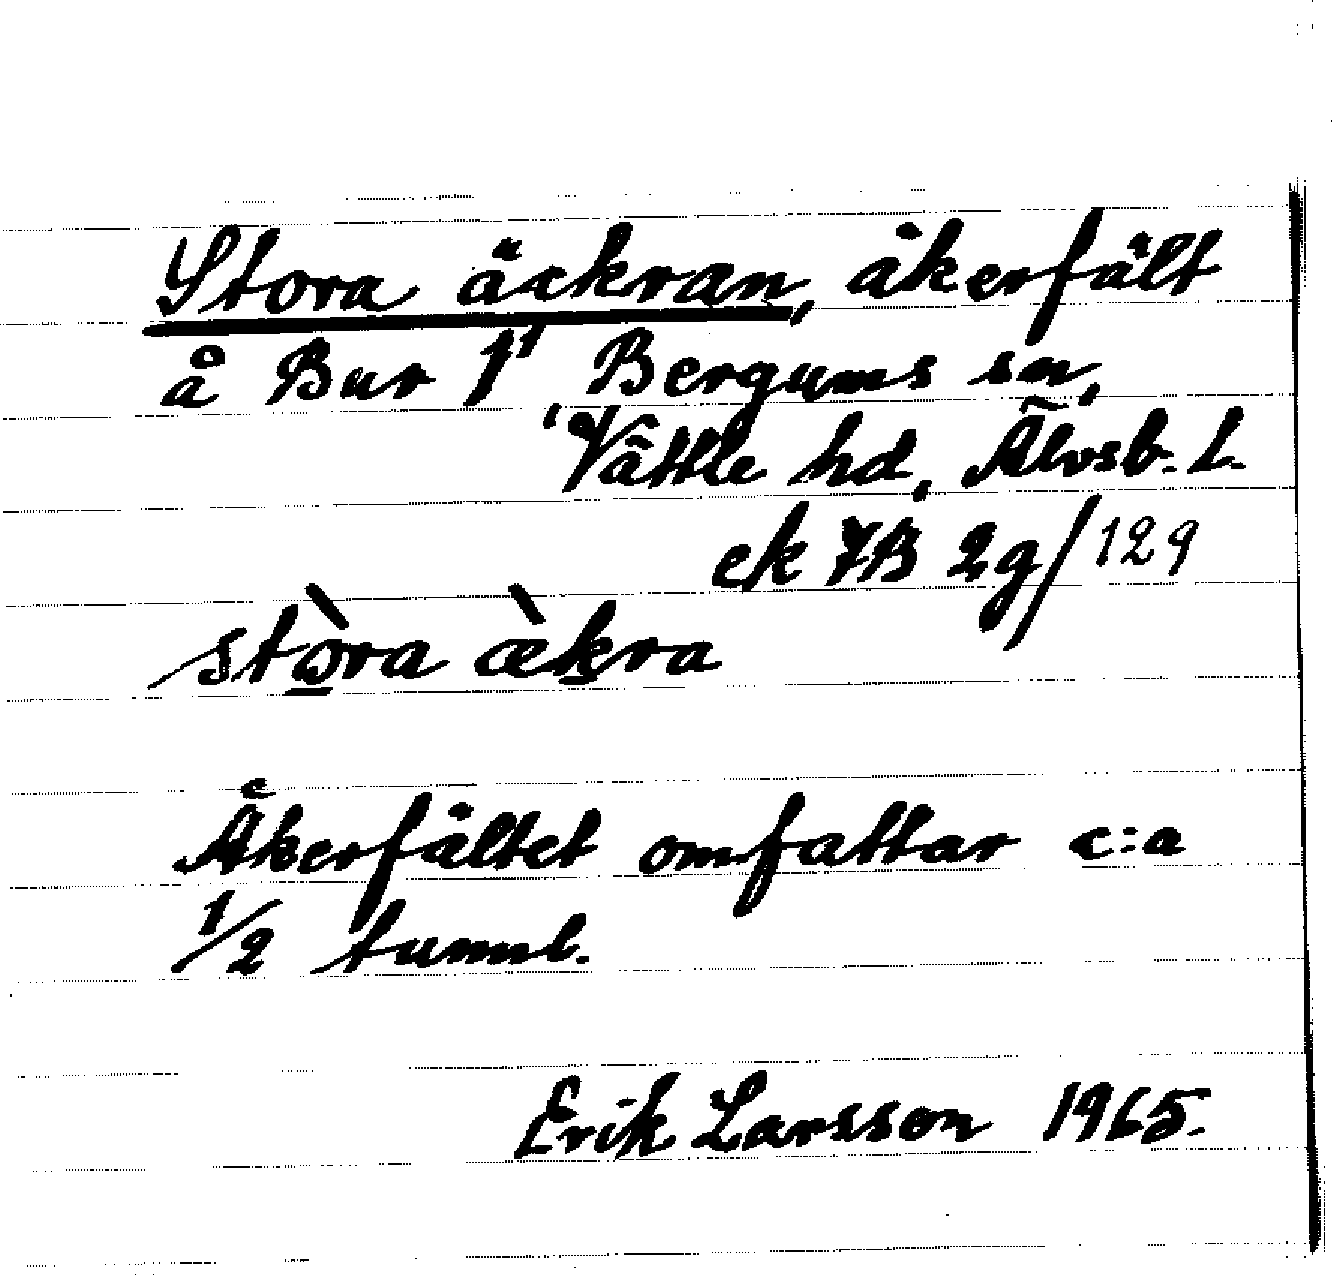 Stora äckran, åkerfält
å Bur 1¹, Bergums sn,
Vättle hd, Älvsb. l.
ek 7B 2g/129
stò̱ra æ̀ḵra
Åkerfältet omfattar c:a
1/2 tunnl.
Erik Larsson 1965.